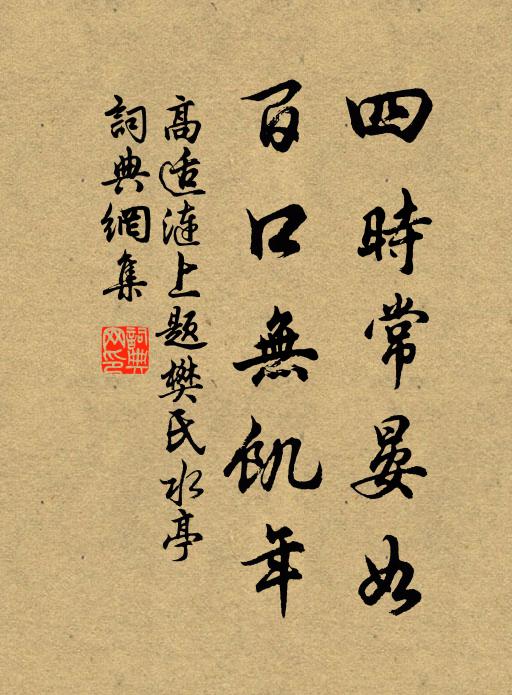 四時常晏如
百口無飢年
高适漣上題樊氏水亭
詞典網集
詞典網印